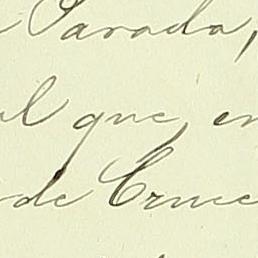 Parada,
que, en
de Cruce